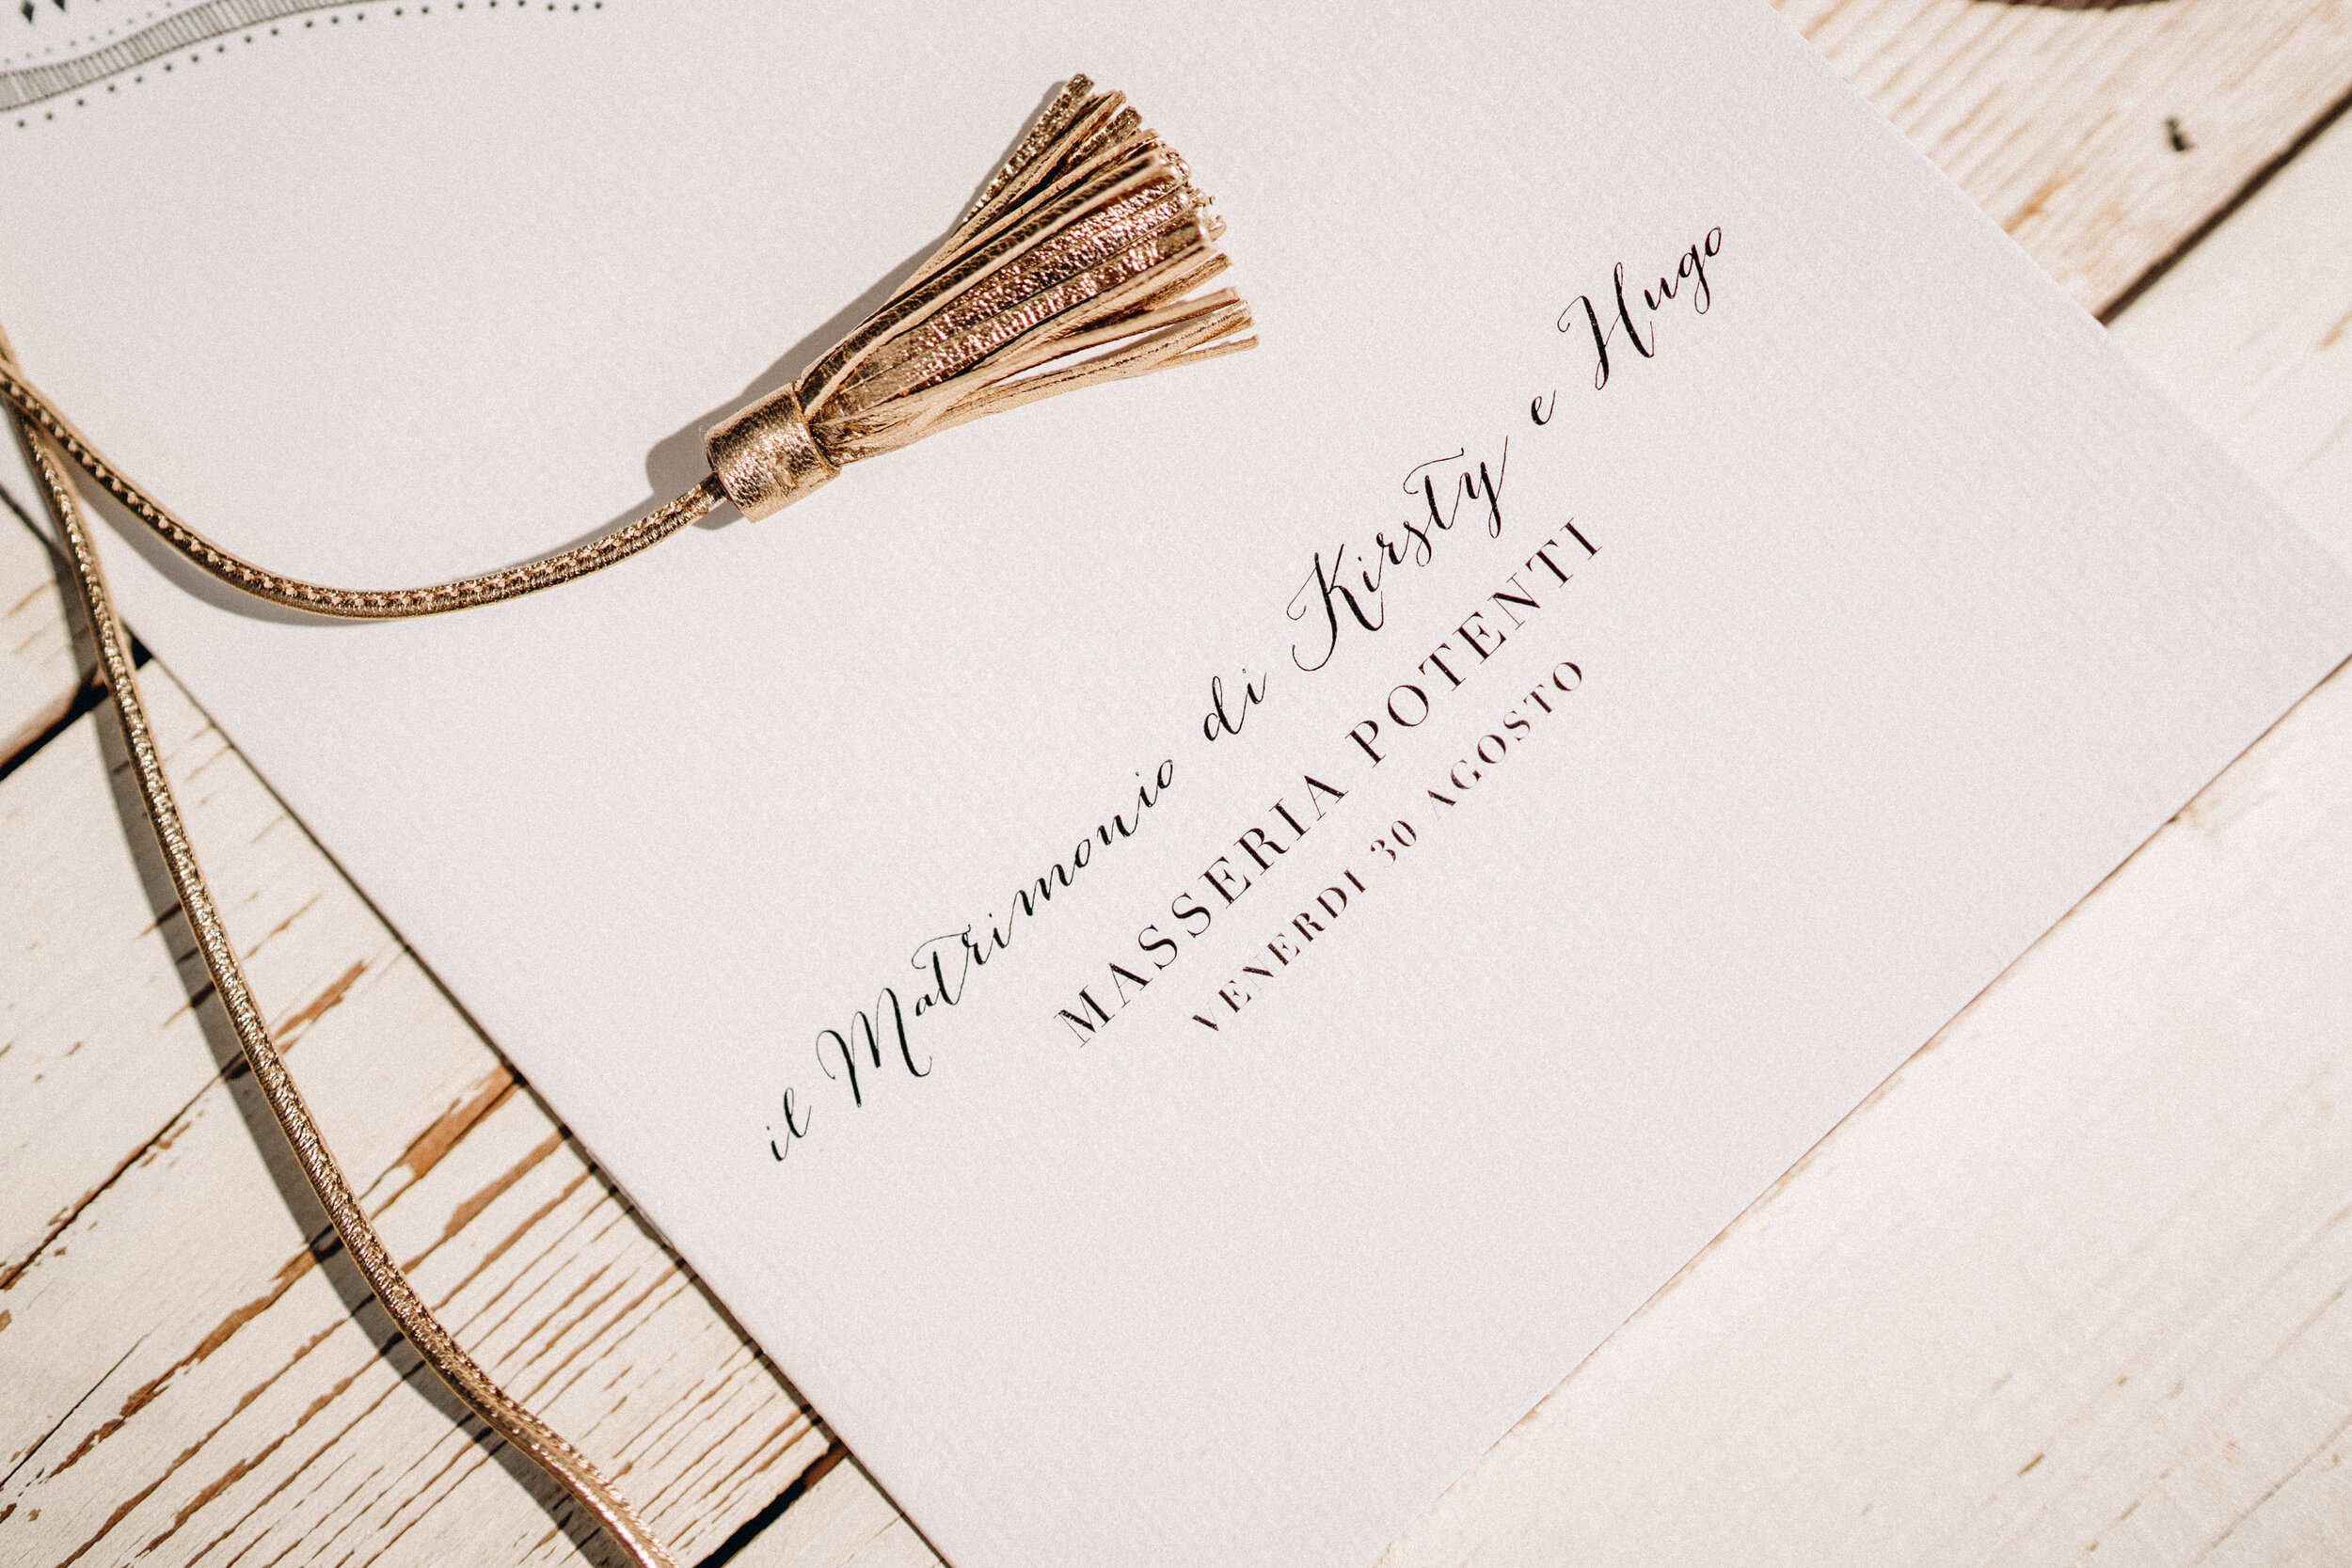 il Matrimonio di Kirsty e Hugo
MASSERIA POTENTI
VENERDI 30 AGOSTO